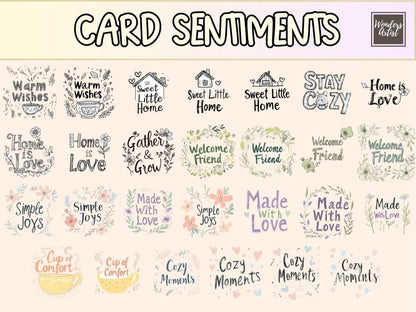 CARD SENTIMENTS
Wonders
Artist
Warm
Wishes
Warm
Wishes
Sweet
Little
Home
Sweet Little
Home
Sweet Little
Home
STAY
COZY
Home is
Love
Home
is
Love
Home
is
Love
Gather
&
Grow
Welcome
Friend
Welcome
Friend
Welcome
Friend
Welcome
Friend
Simple
Joys
Simple
Joys
Made
With
Love
Simple
Joys
Made
With
Love
Made
With
Love
Made
With Love
Cup of
Comfort
Cup of
Comfort
Cozy
Moments
Cozy
Moments
Cozy
Moments
Cozy
Moments